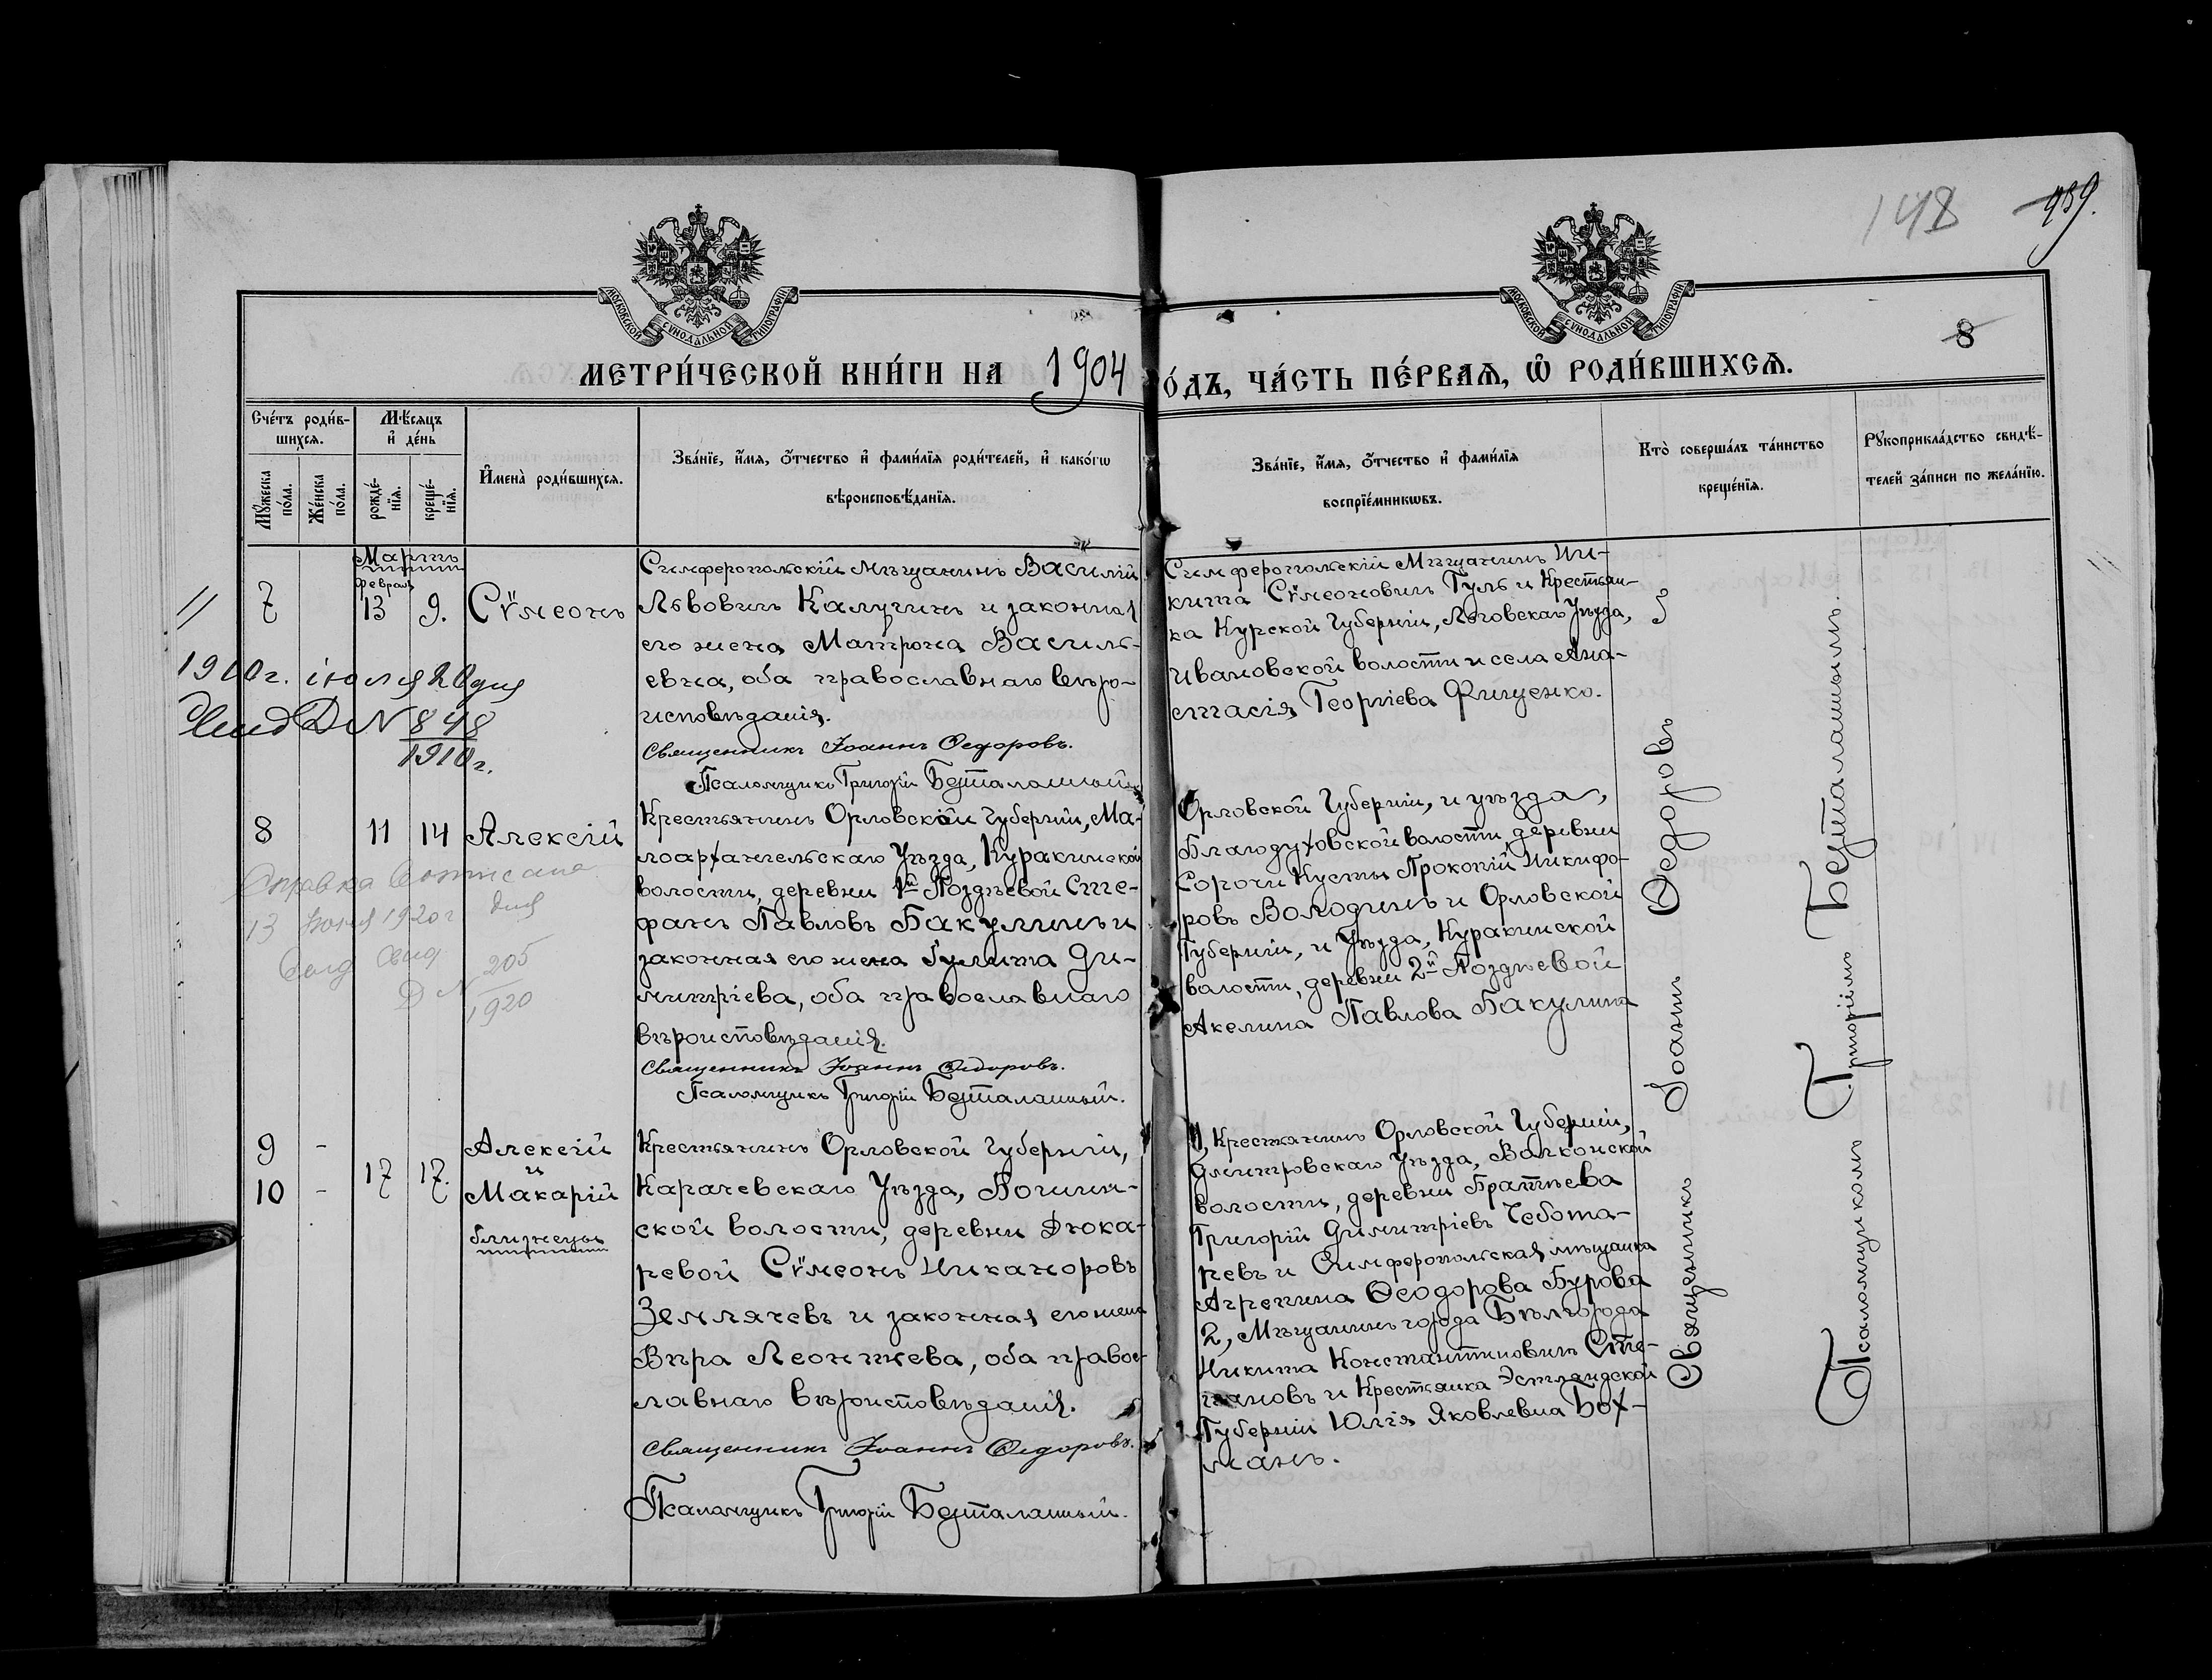 148 459.
МОСКОВСКОЙ СѴНОДАЛЬНОЙ ТИПОГРАФІИ
МОСКОВСКОЙ СѴНОДАЛЬНОЙ ТИПОГРАФІИ
8
МЕТРИ́ЧЕСКОЙ КНИ́ГИ НА 1904
О́ДЪ, ЧА́СТЬ ПЕ́РВАѦ, Ѡ РОДИ́ВШИХСѦ.
Сче́тъ роди́в-
шихся.
Мꙋ́жеска по́ла.
Же́нска по́ла.
Мѣ́сяцъ
и҆ де́нь
рожде́-
нїя.
креще́-
нїя.
И҆мена̀ роди́вшихся.
Зва́нїе, и҆́мя, ѻ҆́тчество и҆ фами́лїя роди́телей, и҆ како́гѡ
вѣроисповѣ́данїя.
Зва́нїе, и҆́мя, ѻ҆́тчество и҆ фами́лїя
воспрїе́мникѡвъ.
Кто̀ соверша́лъ та́инство
креще́нїя.
Рꙋкоприкла́дство свидѣ́-
телей за́писи по жела́нїю.
Мартъ
Февраль
7 13 9. Сѵмеонъ
Симферопольскій мѣщанинъ Василій
Львовичъ Калугинъ и законная
его жена Матрона Василь-
евна, оба православнаго вѣро-
исповѣданія.
Священникъ Іоаннъ Ѳедоровъ.
Псаломщикъ Григорій Безталанный.
Симферопольскій Мѣщанинъ Ни-
кита Сѵмеоновичъ Гуль и Крестьян-
ка Курской Губерніи, Льговскаго Уѣзда,
Ивановской волости и села Ана-
стасія Георгіева Фищенко.
1910г. іюля 20 дня
D N 848
1910г.
8 11 14 Алексій
Крестьянинъ Орловской Губерніи, Ма-
лоархангельскаго Уѣзда, Куракинской
волости, деревни 1й Поздѣевой Сте-
фанъ Павловъ Бакулинъ и
законная его жена Гулита Ди-
митріева, оба православнаго
вѣроисповѣданія.
Священникъ Іоаннъ Ѳедоровъ.
Псаломщикъ Григорій Безталанный.
Орловской Губерніи, и уѣзда,
Благодуховской волости, деревни
Сорочи Кусты Прокопій Никифо-
ровъ Володинъ и Орловской
Губерніи, и Уѣзда, Куракинской
волости, деревни 2й Поздѣевой
Акелина Павлова Бакулина
Справка
13 1920г дня
205
D N 1920
9 - Алексій
и
10 - 17 17. Макарій
близнецы
Крестьянинъ Орловской Губерніи,
Карачевскаго Уѣзда,
ской волости, деревни Дюка-
ревой Сѵмеонъ Никаноровъ
Землячевъ и законная его жена
Вѣра Леонтьева, оба правос-
лавнаго вѣроисповѣданія.
Священникъ Іоаннъ Ѳедоровъ.
Псаломщикъ Григорій Безталанный.
1, Крестьянинъ Орловской Губерніи,
Дмитровскаго Уѣзда, Волконской
волости, деревни Братнева
Григорій Димитріевъ Чебота-
ревъ и Симферопольская мѣщанка
Агрепина Ѳеодорова Бурова
2, Мѣщанинъ города Бѣлгорода
Никита Константиновичъ Сте-
пановъ и Крестьянка Эстляндской
Губерніи Юлія Яковлевна Бох-
манъ.
Священникъ Іоаннъ Ѳедоровъ
Псаломщикомъ Григоріемъ Безталаннымъ.